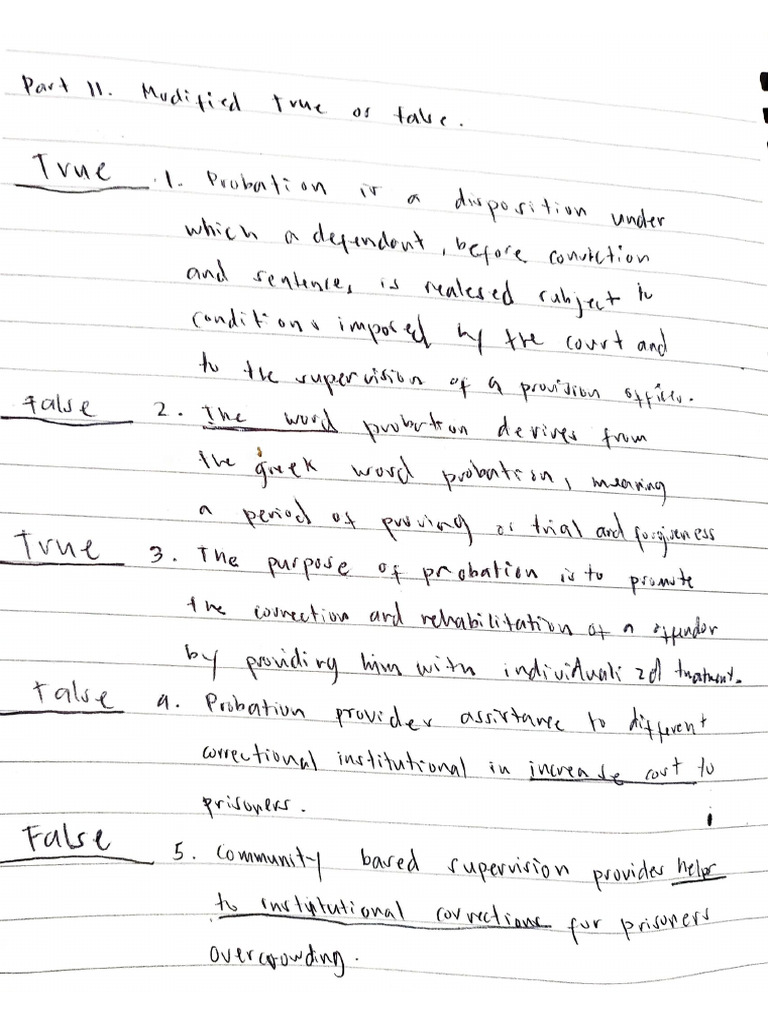 Part II. Modified true or false.
True 1. Probation is a disposition under
which a dependent, before conviction
and sentence, is realesed subject to
conditions imposed by the court and
to the supervision of a provision officer.
False 2. The word probation derives from
the greek word probation, meaning
a period of proving or trial and forgiveness
True 3. The purpose of probation is to promote
the correction and rehabilitation of a offender
by providing him with individualized treatment.
False a. Probation provider assistance to different
correctional institutional in increase cost to
prisoners.
False 5. Community based supervision provides helps
to institutional corrections for prisoners
overcrowding.